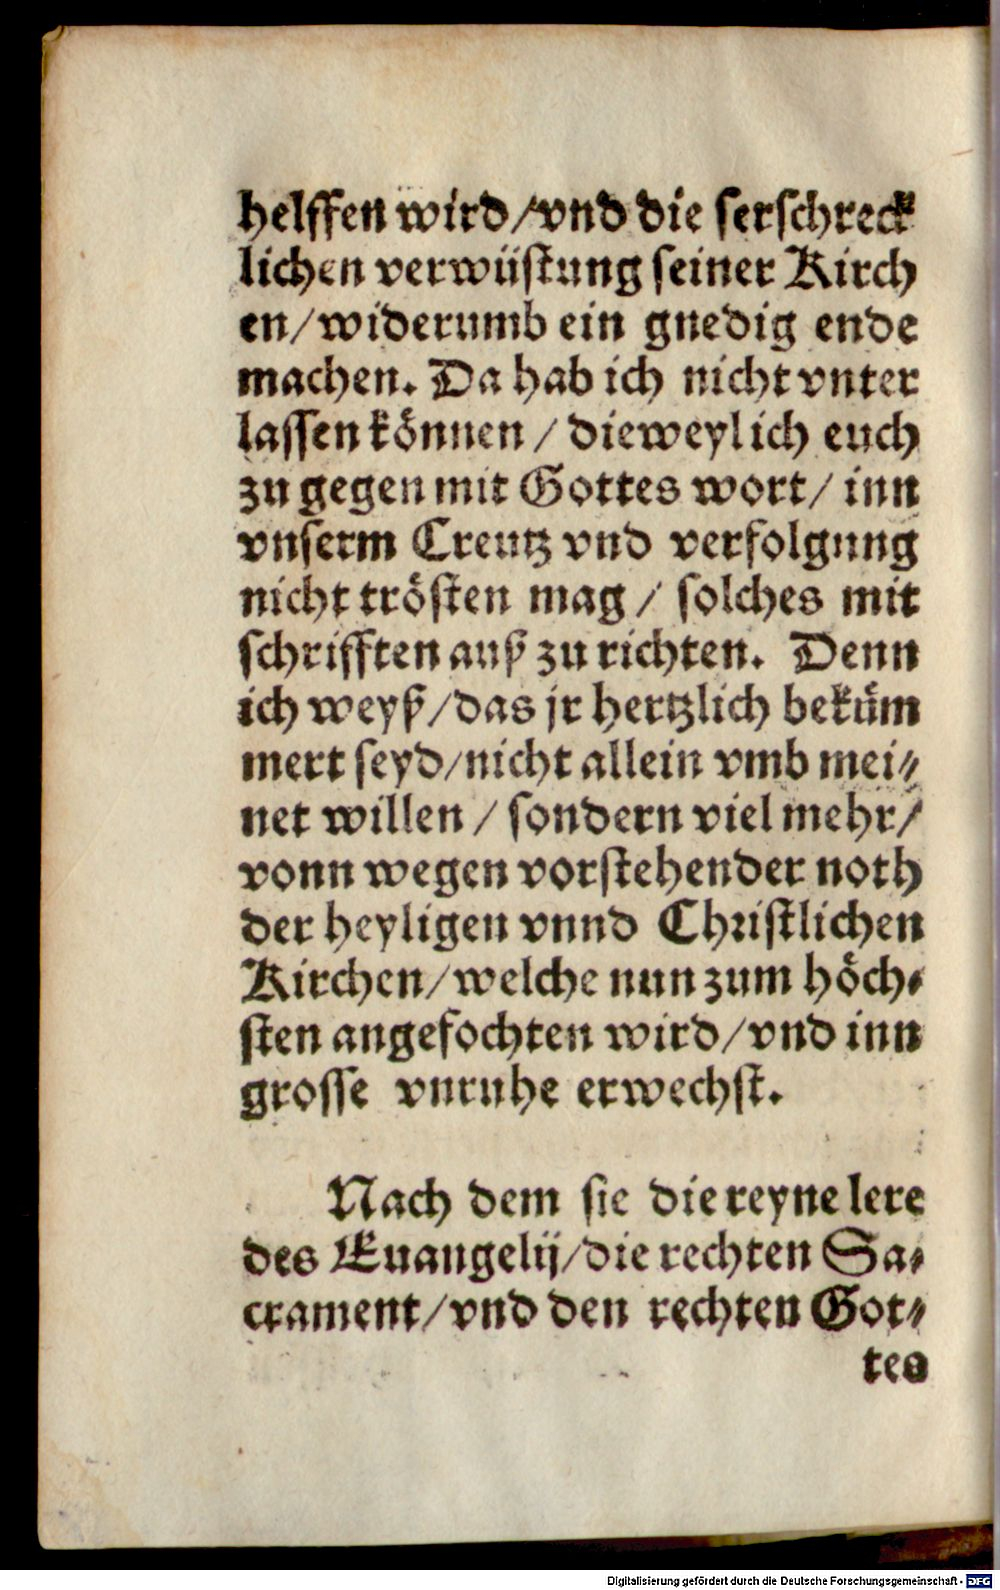 helffen wird/vnd die serschreck
lichen verwüstung seiner Kirch
en/widerumb ein gnedig ende
machen. Da hab ich nicht vnter
lassen können / dieweyl ich euch
zu gegen mit Gottes wort/ inn
vnserm Creutz vnd verfolgung
nicht trösten mag / solches mit
schrifften auß zu richten. Denn
ich weyß/das jr hertzlich beküm
mert seyd/nicht allein vmb mei⸗
net willen / sondern viel mehr/
vonn wegen vorstehender noth
der heyligen vnnd Christlichen
Kirchen/welche nun zum höch⸗
sten angefochten wird/vnd inn
grosse vnruhe erwechst.
Nach dem sie die reyne lere
des Euangelij/die rechten Sa⸗
crament/vnd den rechten Got⸗
tes
Digitalisierung gefördert durch die Deutsche Forschungsgemeinschaft - DFG